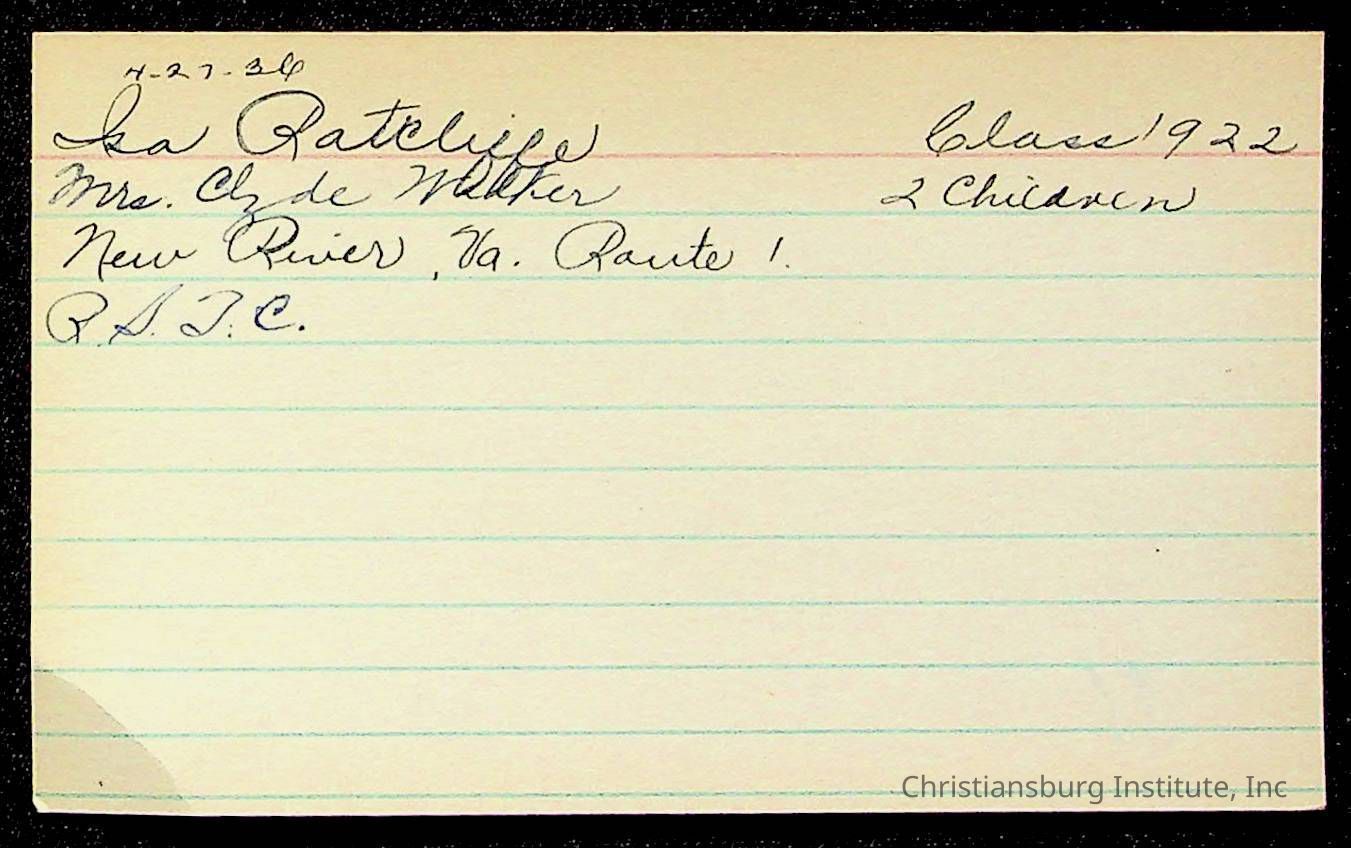 4-27-36
Isa Ratcliffe Class 1922
Mrs. Clyde Walker 2 Children
New River, Va. Route 1.
R.S.T.C.
Christiansburg Institute, Inc